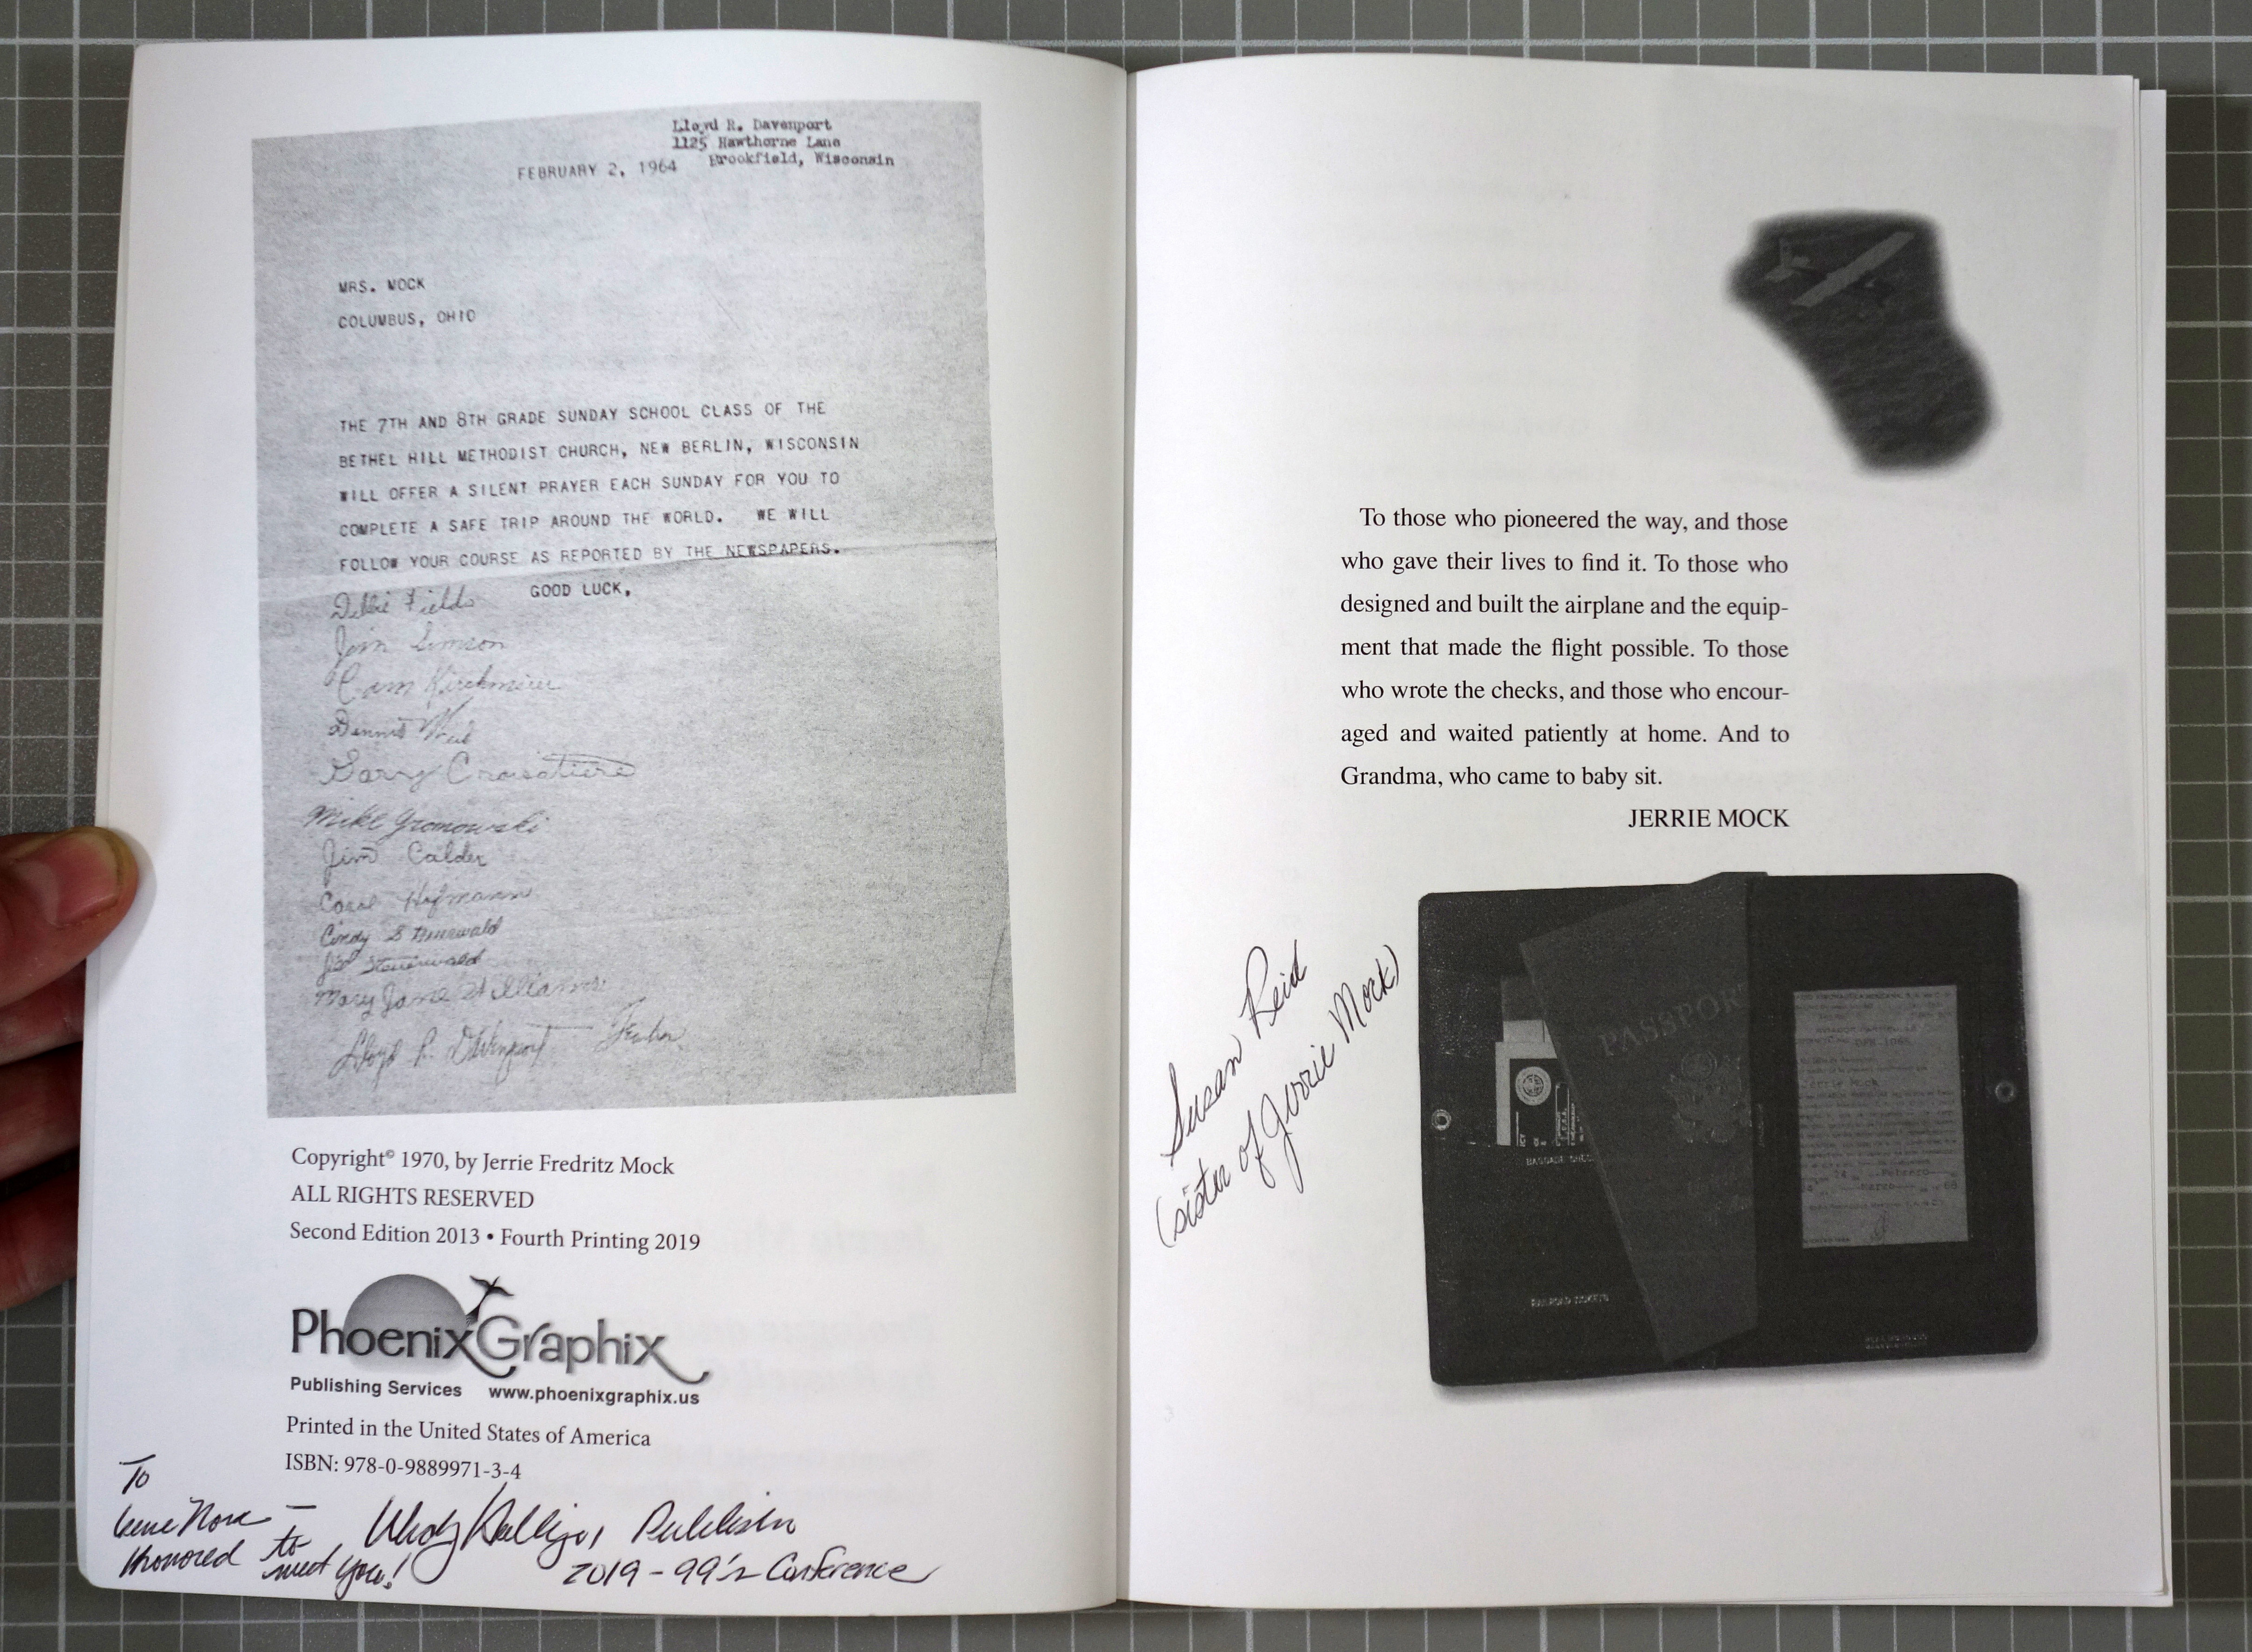 Lloyd R. Davenport
1125 Hawthorne Lane
Brookfield, Wisconsin
FEBRUARY 2, 1964
MRS. MOCK
COLUMBUS, OHIO
THE 7TH AND 8TH GRADE SUNDAY SCHOOL CLASS OF THE
BETHEL HILL METHODIST CHURCH, NEW BERLIN, WISCONSIN
WILL OFFER A SILENT PRAYER EACH SUNDAY FOR YOU TO
COMPLETE A SAFE TRIP AROUND THE WORLD. WE WILL
FOLLOW YOUR COURSE AS REPORTED BY THE NEWSPAPERS.
GOOD LUCK,
Debbie Fields
Jim Simson
Kirchmeier
Dennis
Garry
Mike Gromowski
Jim Calder
Hofmann
Cindy
Mary Jane Williams
Lloyd R. Davenport
Copyright© 1970, by Jerrie Fredritz Mock
ALL RIGHTS RESERVED
Second Edition 2013 • Fourth Printing 2019
PhoenixGraphix
Publishing Services www.phoenixgraphix.us
Printed in the United States of America
ISBN: 978-0-9889971-3-4
To
Gene Nora —
Honored to
meet you!
Publisher
2019 - 99's Conference
To those who pioneered the way, and those
who gave their lives to find it. To those who
designed and built the airplane and the equip-
ment that made the flight possible. To those
who wrote the checks, and those who encour-
aged and waited patiently at home. And to
Grandma, who came to baby sit.
JERRIE MOCK
Susan Reid
(sister of Jerrie Mock)
PASSPORT
Jerrie Mock
RAILROAD TICKETS